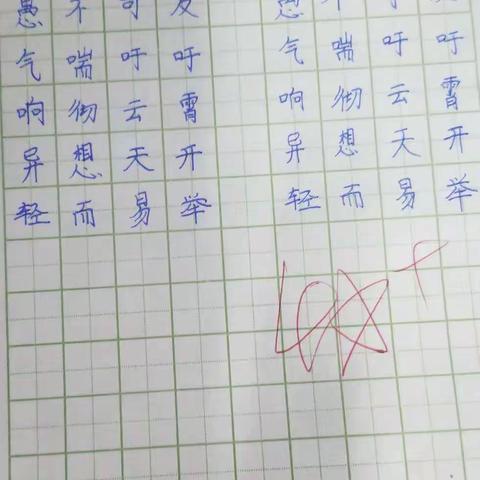 愚不可及
气喘吁吁 气喘吁吁
响彻云霄 响彻云霄
异想天开 异想天开
轻而易举 轻而易举